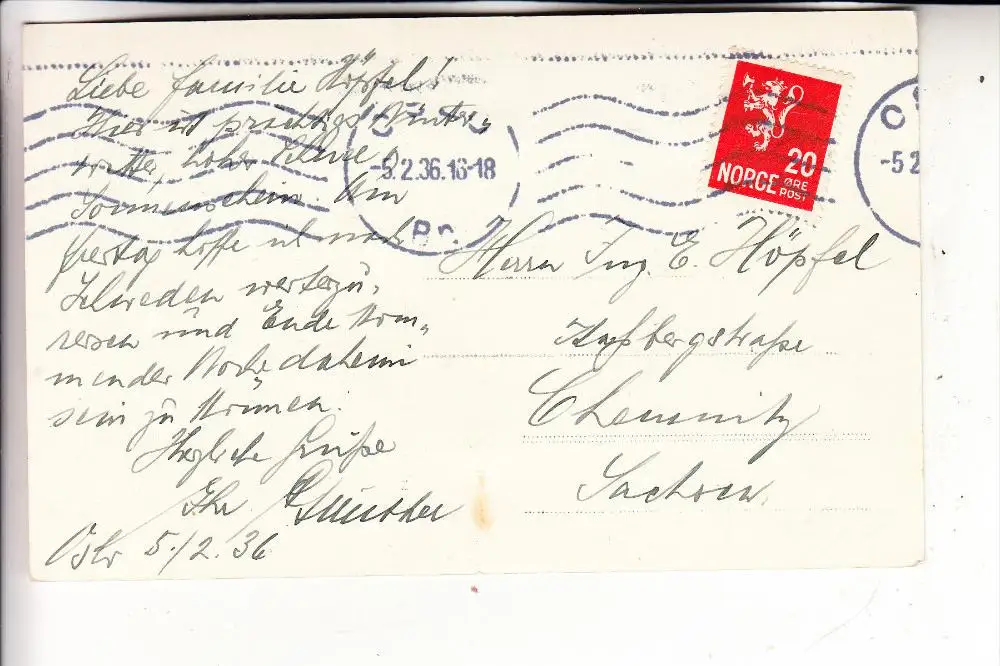 Liebe Familie Höpfel!
Hier ist prächtiges Winter„
wetter, hoher Schnee,
Sonnenschein. Am
Freitag hoffe ich nach
Schweden weiterzu„
reisen und Ende kom„
mender Woche daheim
sein zu können.
Herzliche Grüße
Ihr
Oslo 5./2. 36
-5.2.36.16-18
Pr.
20
NORGE ØRE
POST
-5.2
Herrn Ing. E. Höpfel
Kaßbergstraße
Chemnitz
Sachsen.